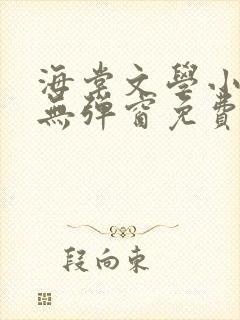 海棠文學小
無彈窗免費
段向東